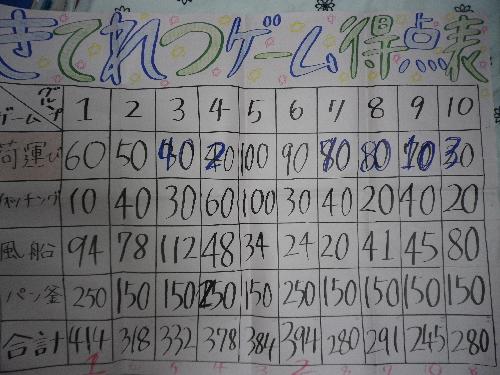 きてれつゲーム得点表
グループ
ゲーム 1 2 3 4 5 6 7 8 9 10
荷運び 60 50 40 20 100 90 70 80 10 30
キャッチング 10 40 30 60 100 30 40 20 40 20
風船 94 78 112 48 34 24 20 41 45 80
パン釜 250 150 150 250 150 250 150 150 150 150
合計 414 318 332 378 384 394 280 291 245 280
1 2